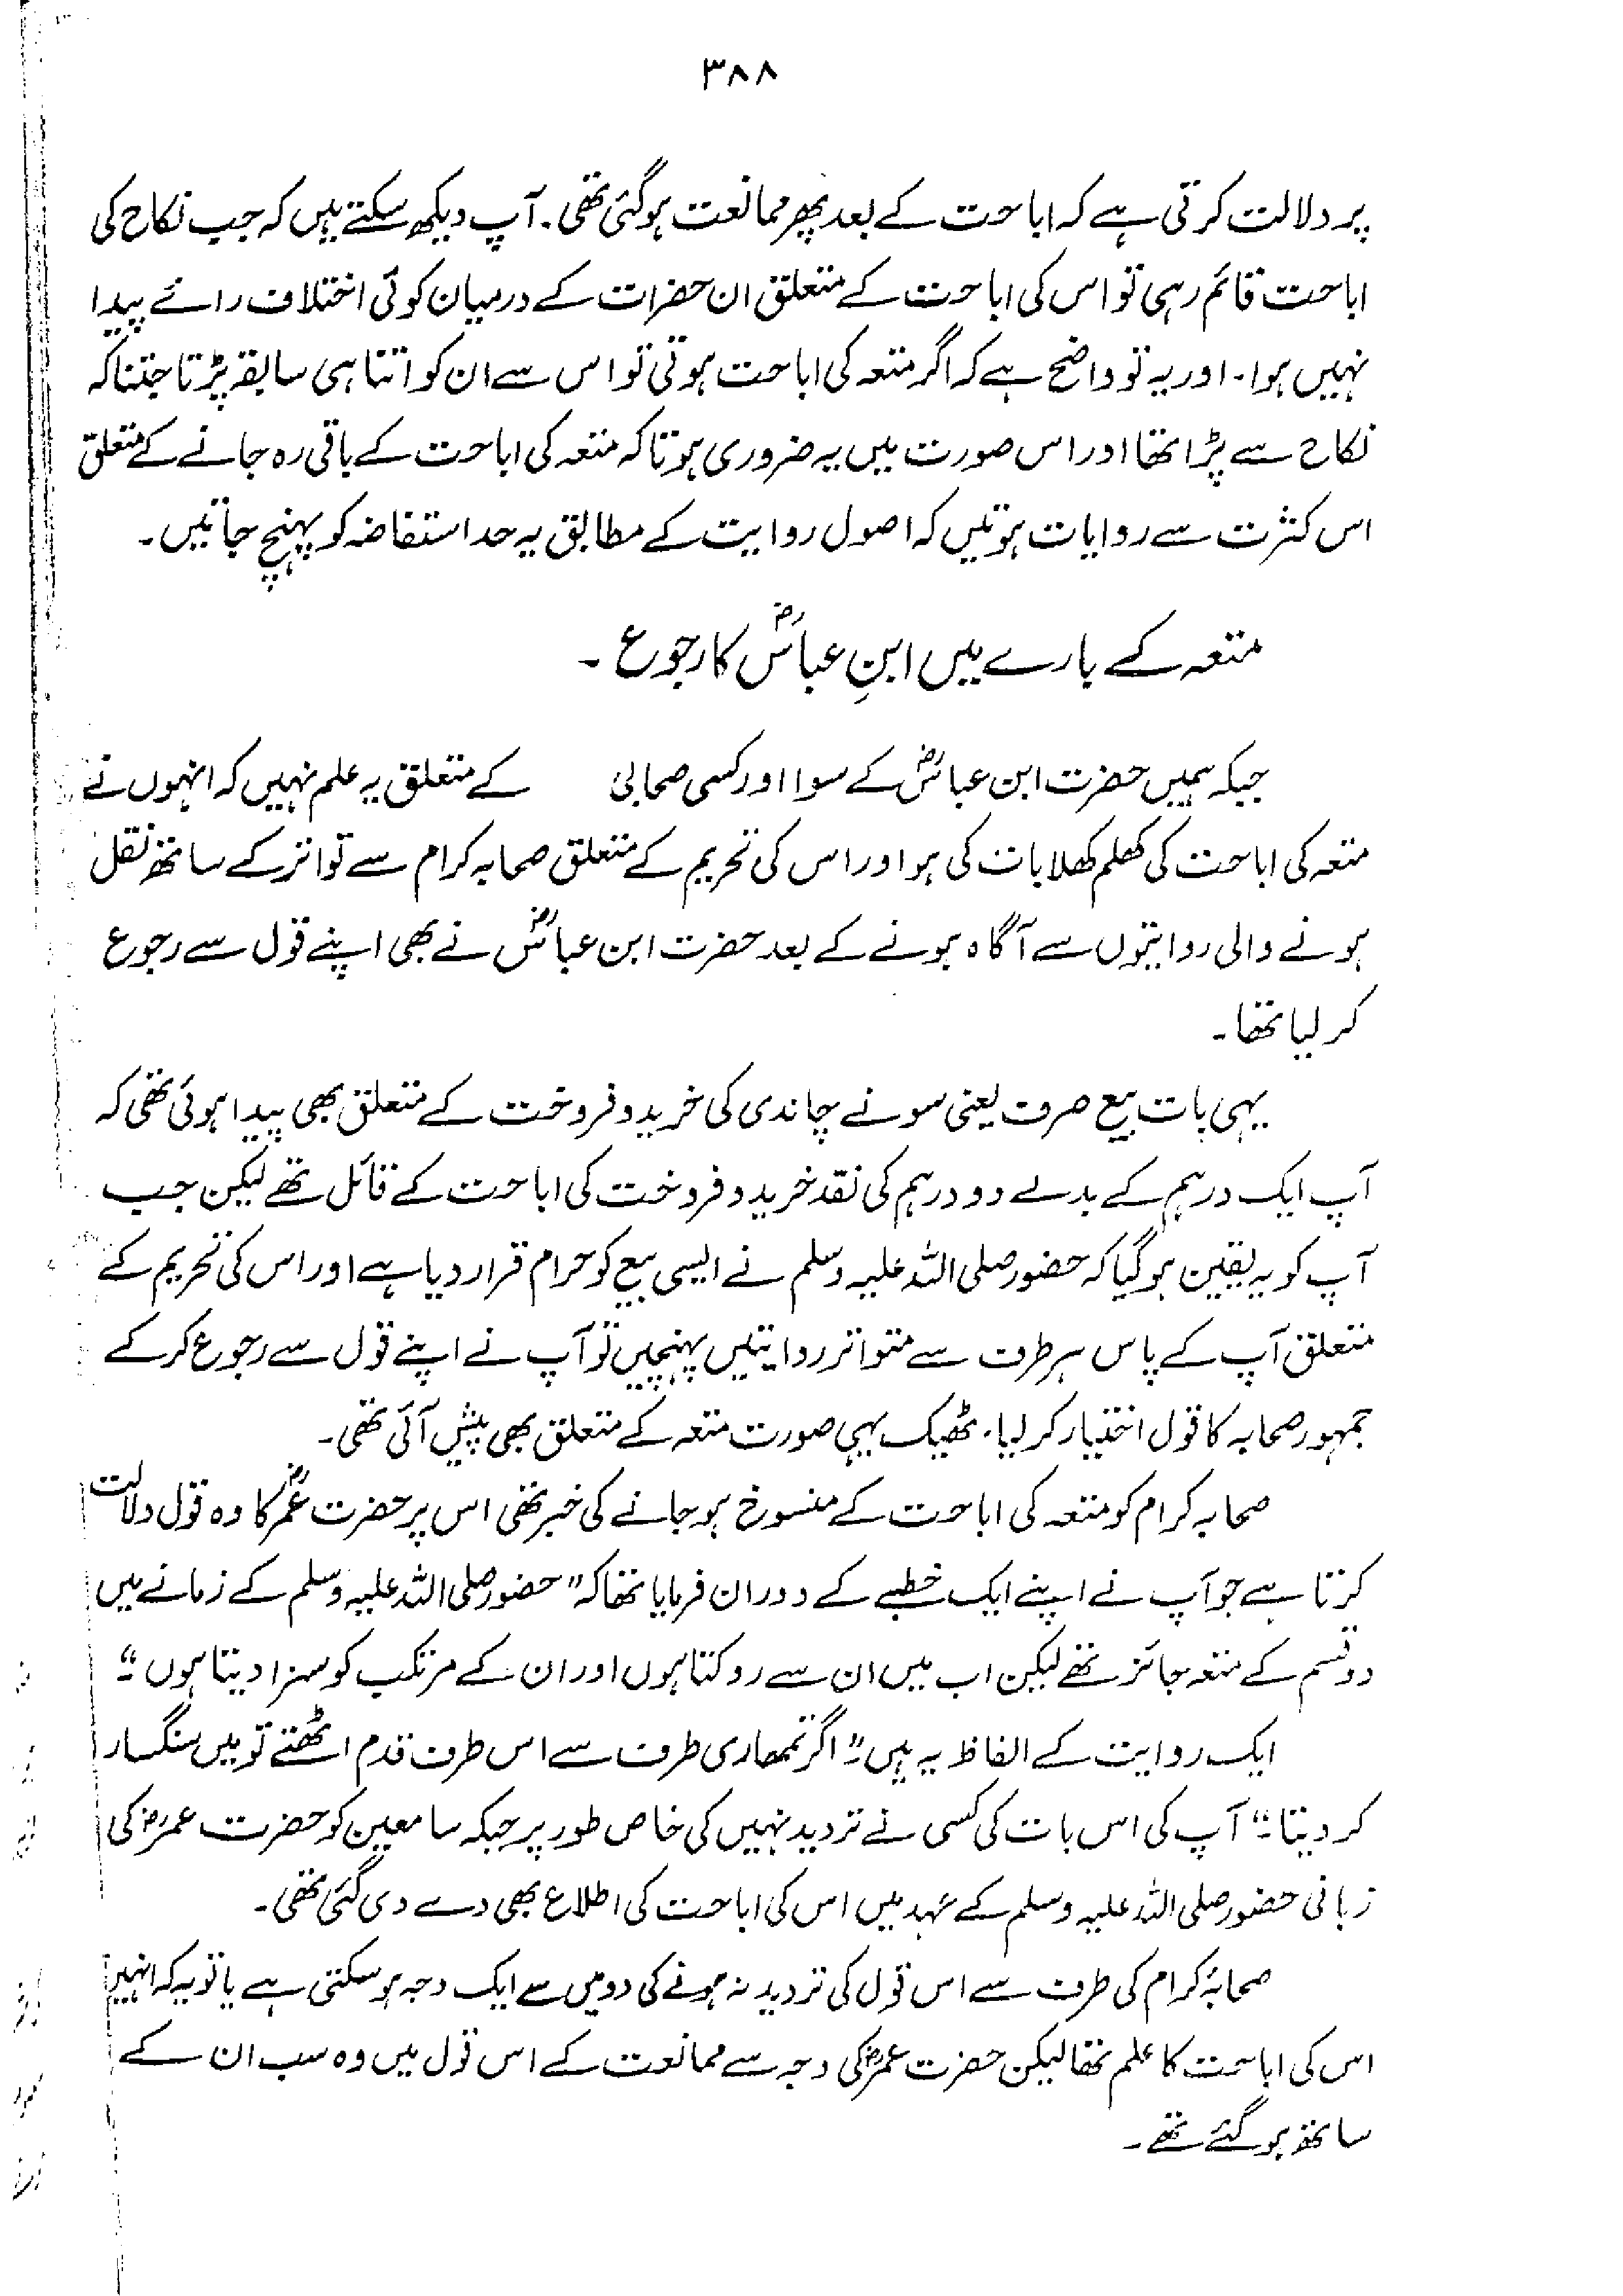 ۳۸۸
پر دلالت کرتی ہے کہ اباحت کے بعد پھر ممانعت ہوگئی تھی۔ آپ دیکھ سکتے ہیں کہ جب نکاح کی
اباحت قائم رہی تو اس کی اباحت کے متعلق ان حضرات کے درمیان کوئی اختلاف رائے پیدا
نہیں ہوا۔ اور یہ تو واضح ہے کہ اگر متعہ کی اباحت ہوتی تو اس سے ان کو اتنا ہی سابقہ پڑتا جتنا کہ
نکاح سے پڑا تھا اور اس صورت میں یہ ضروری ہوتا کہ متعہ کی اباحت کے باقی رہ جانے کے متعلق
اس کثرت سے روایات ہوتیں کہ اصول روایت کے مطابق یہ حد استفاضہ کو پہنچ جاتیں۔
متعہ کے بارے میں ابنِ عباسؓ کا رجوع ۔
جبکہ ہمیں حضرت ابن عباسؓ کے سوا اور کسی صحابی کے متعلق یہ علم نہیں کہ انہوں نے
متعہ کی اباحت کی کھلم کھلا بات کی ہو اور اس کی تحریم کے متعلق صحابہ کرام سے تواتر کے ساتھ نقل
ہونے والی روایتوں سے آگاہ ہونے کے بعد حضرت ابن عباسؓ نے بھی اپنے قول سے رجوع
کر لیا تھا۔
یہی بات بیع صرف یعنی سونے چاندی کی خرید و فروخت کے متعلق بھی پیدا ہوئی تھی کہ
آپ ایک درہم کے بدلے دو درہم کی نقد خرید و فروخت کی اباحت کے قائل تھے لیکن جب
آپ کو یہ یقین ہو گیا کہ حضور صلی اللہ علیہ وسلم نے ایسی بیع کو حرام قرار دیا ہے اور اس کی تحریم کے
متعلق آپ کے پاس ہر طرف سے متواتر روایتیں پہنچیں تو آپ نے اپنے قول سے رجوع کر کے
جمہور صحابہ کا قول اختیار کر لیا۔ ٹھیک یہی صورت متعہ کے متعلق بھی پیش آئی تھی۔
صحابہ کرام کو متعہ کی اباحت کے منسوخ ہو جانے کی خبر تھی اس پر حضرت عمرؓ کا وہ قول دلالت
کرتا ہے جو آپ نے اپنے ایک خطبے کے دوران فرمایا تھا کہ "حضور صلی اللہ علیہ وسلم کے زمانے میں
دو قسم کے متعہ جائز تھے لیکن اب میں ان سے روکتا ہوں اور ان کے مرتکب کو سزا دیتا ہوں"۔
ایک روایت کے الفاظ یہ ہیں"۔ اگر تمھاری طرف سے اس طرف قدم اٹھتے تو میں سنگسار
کر دیتا۔" آپ کی اس بات کی کسی نے تردید نہیں کی خاص طور پر جبکہ سامعین کو حضرت عمرؓ کی
زبانی حضور صلی اللہ علیہ وسلم کے عہد میں اس کی اباحت کی اطلاع بھی دے دی گئی تھی۔
صحابۂ کرام کی طرف سے اس قول کی تردید نہ ہونے کی دو میں سے ایک وجہ ہو سکتی ہے یا تو یہ کہ انہیں
اس کی اباحت کا علم تھا لیکن حضرت عمرؓ کی وجہ سے ممانعت کے اس قول میں وہ سب ان کے
ساتھ ہو گئے تھے۔